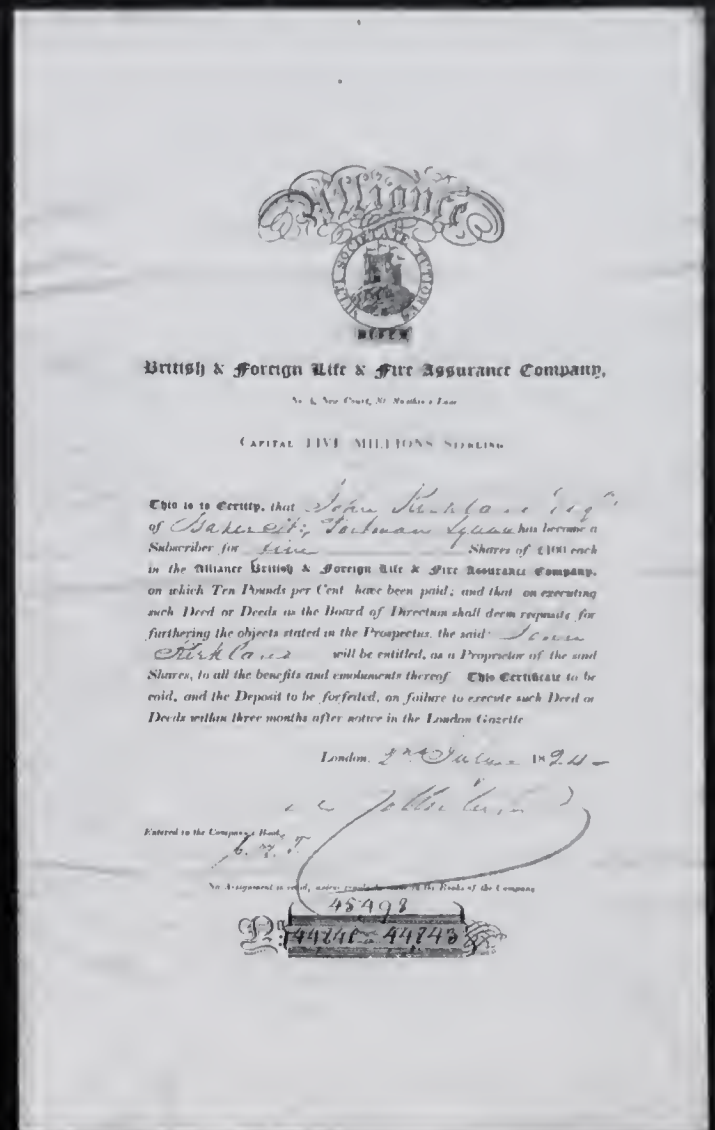 Alliance
MULTI SOCIETATE TUTIORES
British & Foreign Life & Fire Assurance Company,
No 4, New Court, St Swithin's Lane
CAPITAL FIVE MILLIONS STERLING
This is to Certify, that John Kirkland Esqr
of Baker St; Portman Square has become a
Subscriber for Shares of £100 each
in the Alliance British & Foreign Life & Fire Assurance Company,
on which Ten Pounds per Cent have been paid; and that on executing
such Deed or Deeds as the Board of Directors shall deem requisite for
furthering the objects stated in the Prospectus, the said John
Kirkland will be entitled, as a Proprietor of the said
Shares, to all the benefits and emoluments thereof This Certificate to be
void, and the Deposit to be forfeited, on failure to execute such Deed or
Deeds within three months after notice in the London Gazette
London, 2nd 1824
Entered in the Company's Books,
No Assignment is valid, unless made in the Books of the Company
45498